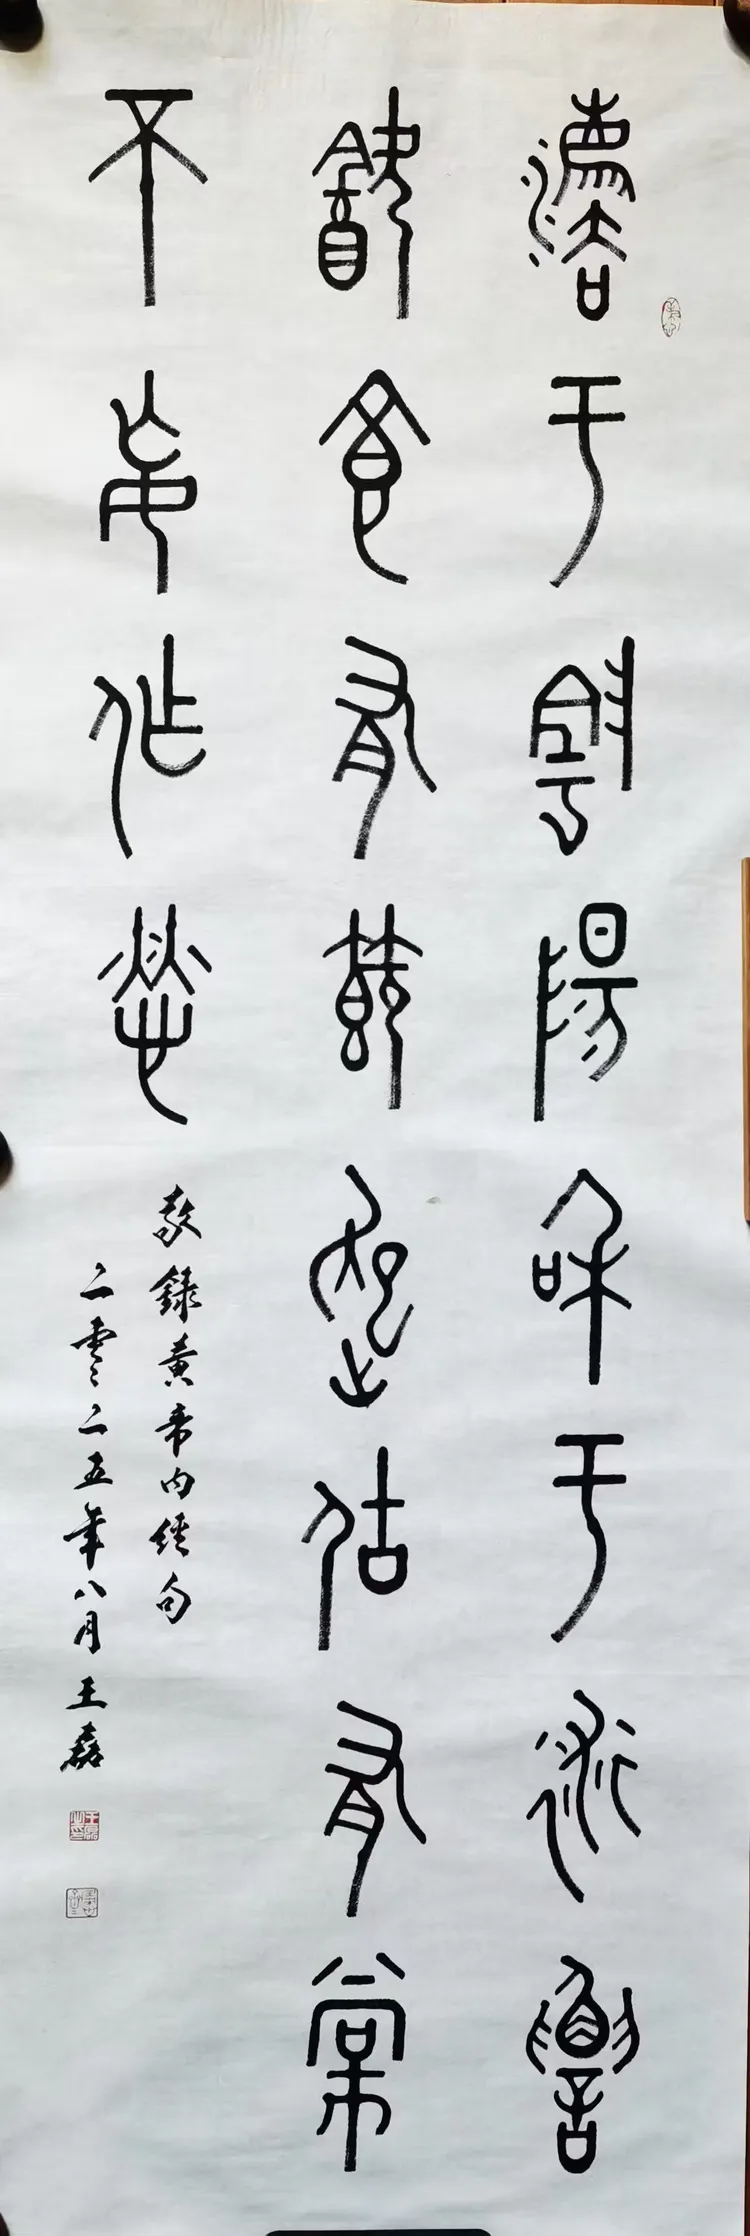 灋于陰陽和于術數
飲食有節起居有常
不妄作勞
敬録黄帝内經句
二零二五年八月王磊